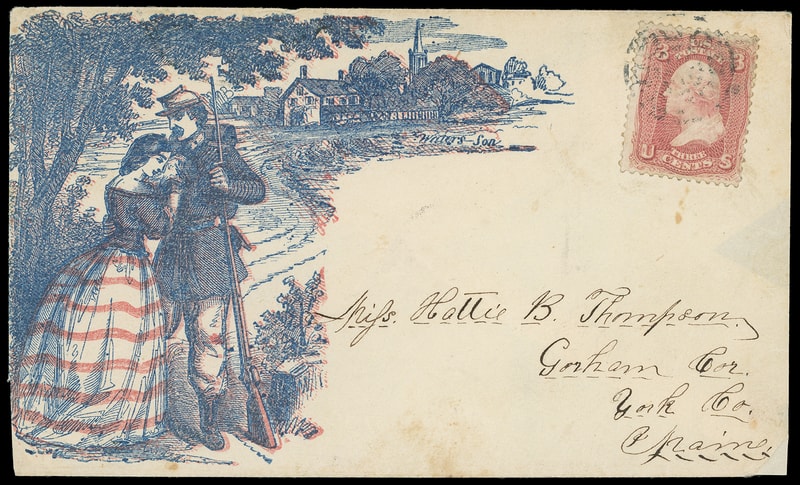 3 3
U THREE S
CENTS
Waters-Son
Miss. Hattie B. Thompson.
Gorham Cor.
York Co.
Maine,